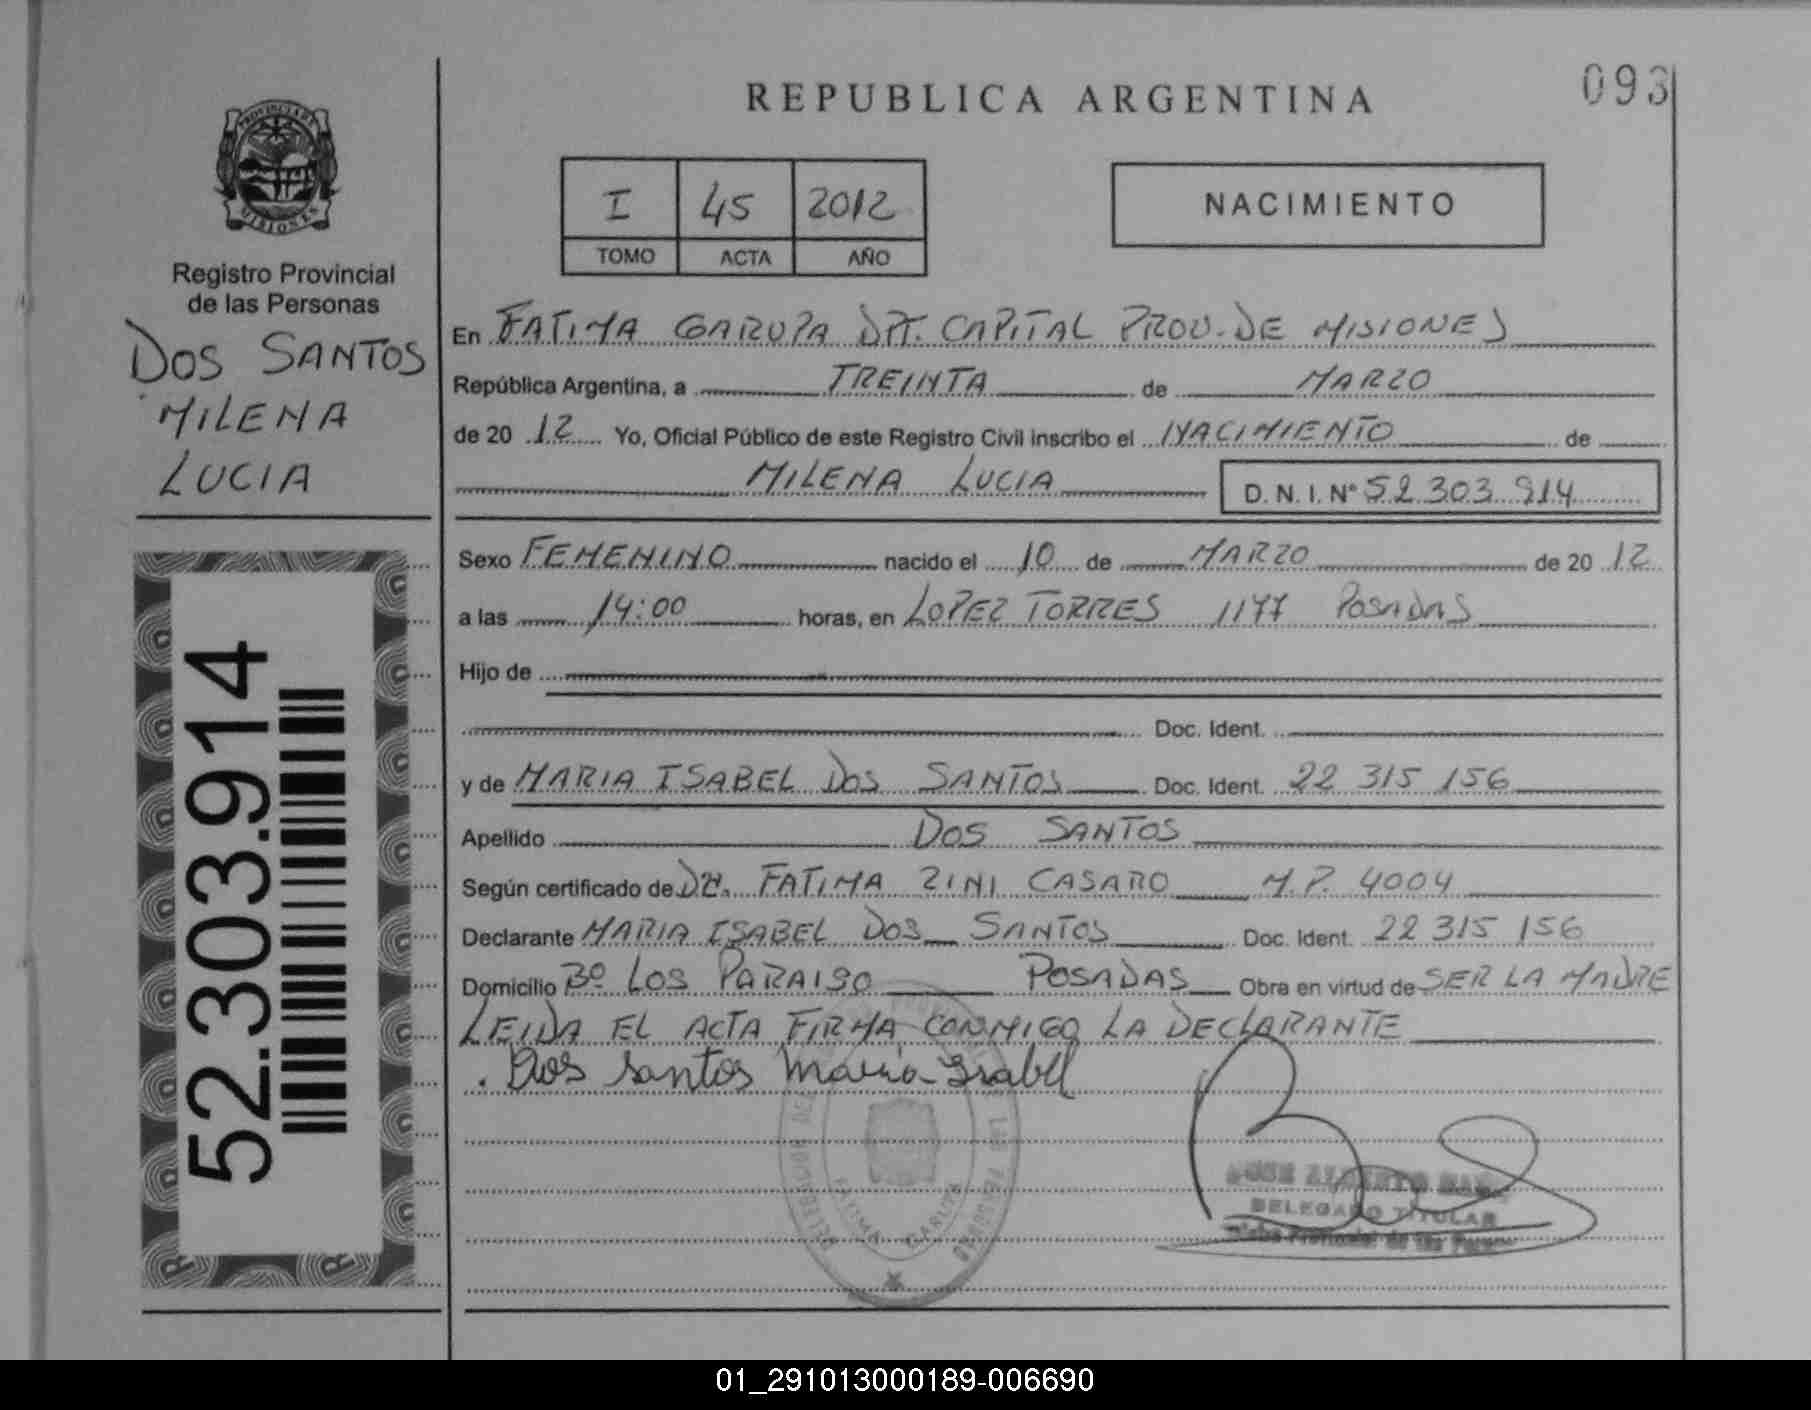 093
REPUBLICA ARGENTINA
PROVINCIA DE
MISIONES
Registro Provincial
de las Personas
DOS SANTOS
MILENA
LUCIA
52.303.914
I 45 2012
TOMO ACTA AÑO
NACIMIENTO
En FATIMA GARUPA DPT. CAPITAL PROV. DE MISIONES
República Argentina, a TREINTA de MARZO
de 20 12 Yo, Oficial Público de este Registro Civil inscribo el NACIMIENTO de
MILENA LUCIA D. N. I. Nº 52 303 914
Sexo FEMENINO nacido el 10 de MARZO de 20 12
a las 14:00 horas, en LOPEZ TORRES 1177 POSADAS
Hijo de
Doc. Ident.
y de MARIA ISABEL DOS SANTOS Doc. Ident. 22 315 156
Apellido DOS SANTOS
Según certificado de DRA. FATIMA ZINI CASARO M.P. 4004
Declarante MARIA ISABEL DOS SANTOS Doc. Ident. 22 315 156
Domicilio Bº LOS PARAISO POSADAS Obra en virtud de SER LA MADRE
LEIDA EL ACTA FIRMA CONMIGO LA DECLARANTE
Dos Santos Maria Isabel
JOSE ALBERTO
DELEGADO TITULAR
FATIMA GARUPA
01_291013000189-006690